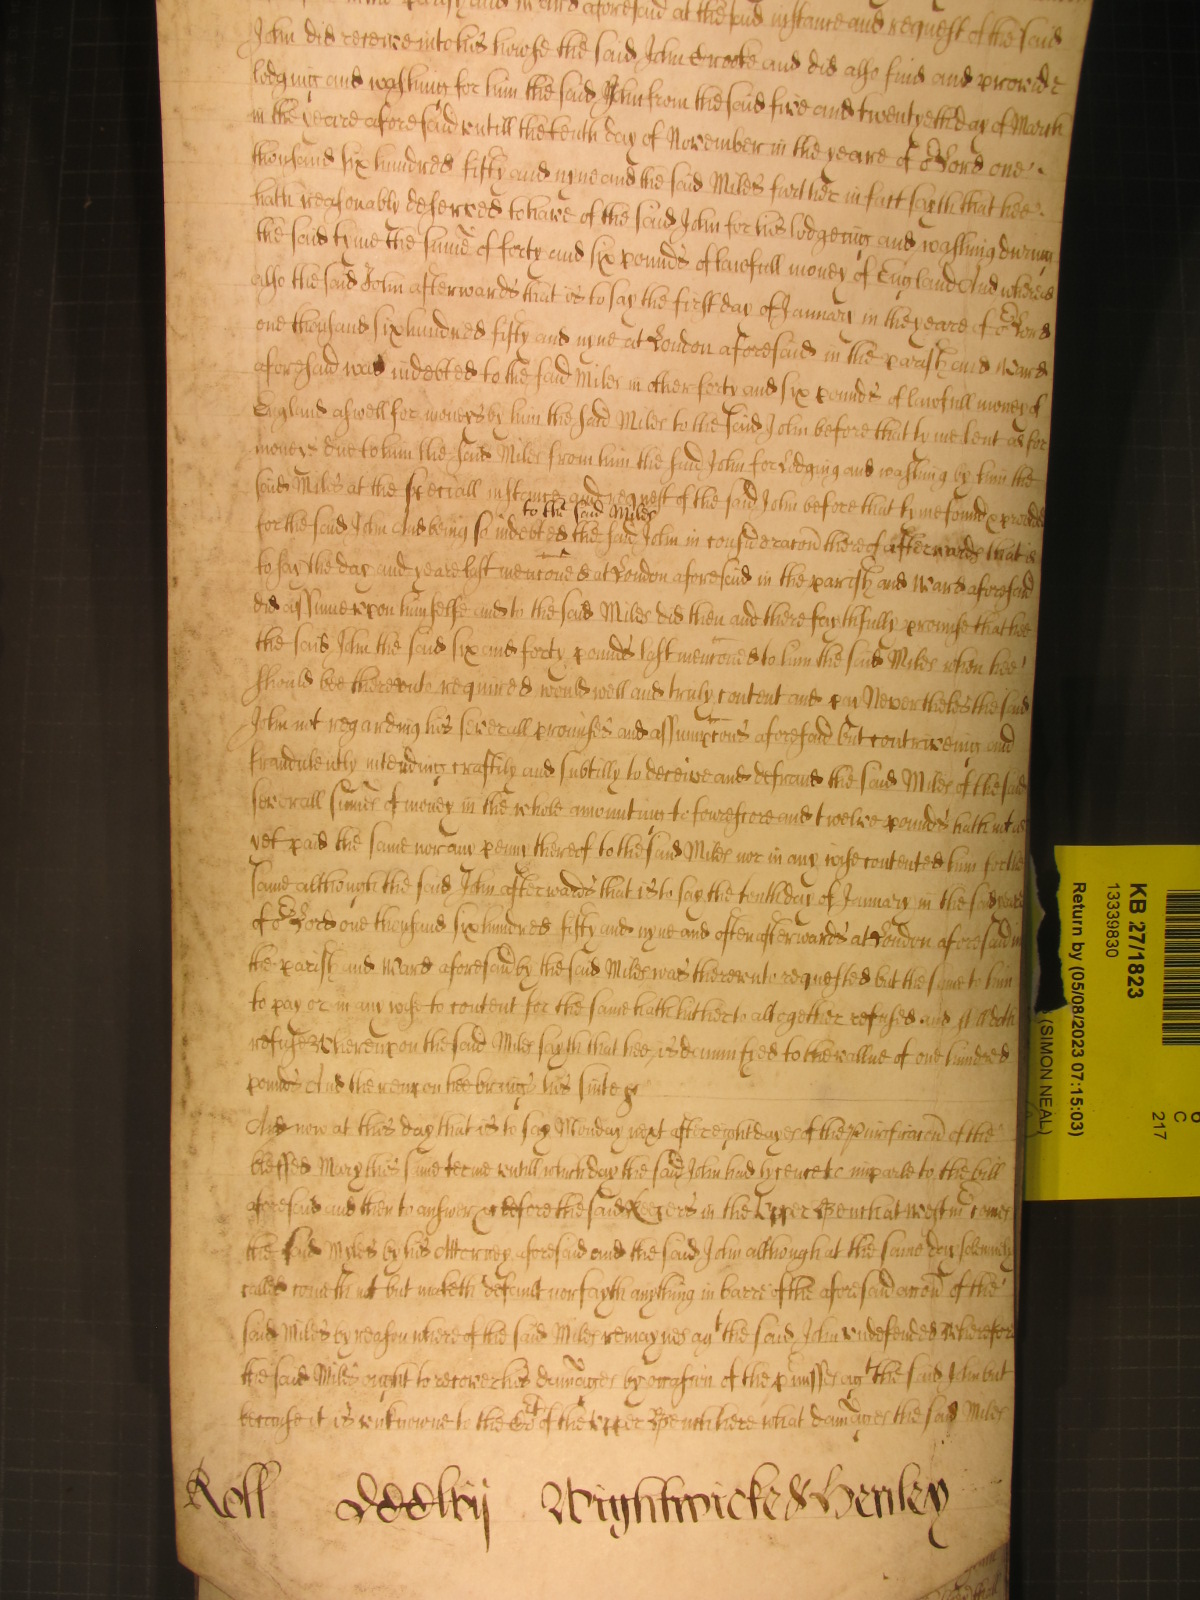 parish and ward aforesaid at the said instance and request of the said
John did receive into his howse the said John Crooke and did also find and provide
lodging and washing for him the said John from the said five and twentyeth day of March
in the yeare aforesaid untill the tenth day of November in the yeare of or Lord one
thousand six hundred fifty and nyne and the said Miles further in fact sayth that hee
hath reasonably deserved to have of the said John for his lodgeing and washing during
the said tyme the sume of forty and six pounds of lawfull money of England And whereas
also the said John afterwards that is to say the first day of January in the yeare of or Lord
one thousand six hundred fifty and nyne at London aforesaid in the parish and Ward
aforesaid was indebted to the said Miles in other forty and six pounds of lawfull money of
England aswell for moneys by him the said Miles to the said John before that tyme lent as for
moneys due to him the said Miles from him the said John for Lodging and washing by him the
said Miles at the speciall instance and request of the said John before that tyme found & provided
to the said Miles
for the said John And being so indebted the said John in consideracon thereof afterwards that is
to say the day and yeare last menconed at London aforesaid in the parish and Ward aforesaid
did assume upon himselfe and to the said Miles did then and there faythfully promise that hee
the said John the said six and forty pounds last menconed to him the said Miles when hee
should bee thereunto required would well and truly content and pay Nevertheles the said
John not regarding his severall promises and assumpcons aforesaid but contriveing and
fraudulently intending craftily and subtilly to deceive and defraud the said Miles of the said
severall sumes of money in the whole amounting to fourescore and twelve pounds hath not as
yet paid the same nor any penny thereof to the said Miles nor in any wise contented him for the
same although the said John afterwards that is to say the tenth day of January in the said yeare
of or Lord one thousand six hundred fifty and nyne and often afterwards at London aforesaid in
the parish and Ward aforesaid by the said Miles was thereunto requested but the same to him
to pay or in any wise to content for the same hath hitherto altogether refused and still doth
refuse Whereupon the said Miles sayth that hee is damnifyed to the vallue of one hundred
pounds And thereupon hee brings his suite &
And now at this day that is to say Monday next after eight dayes of the Purificacon of the
blessed Mary this same terme untill which day the said John had lycence to imparle to the bill
aforesaid and then to answer &c before the said Keepers in the Upper Bench at Westm comes
the said Myles by his Attorney aforesaid and the said John although at the same day solemnly
called cometh not but maketh default nor sayth anything in barre of the aforesaid accon of the
said Miles by reason whereof the said Miles remaynes agt the said John undefended Wherefore
the said Miles ought to recover his damages by occasion of the pmisses agt the said John but
because it is unknowne to the Cort of the Upper Bench here what damages the said Miles
Roll Wightwicke & Henley
KB 27/1823
13339830
Return by (05/08/2023 07:15:03)
(SIMON NEAL)
C
217